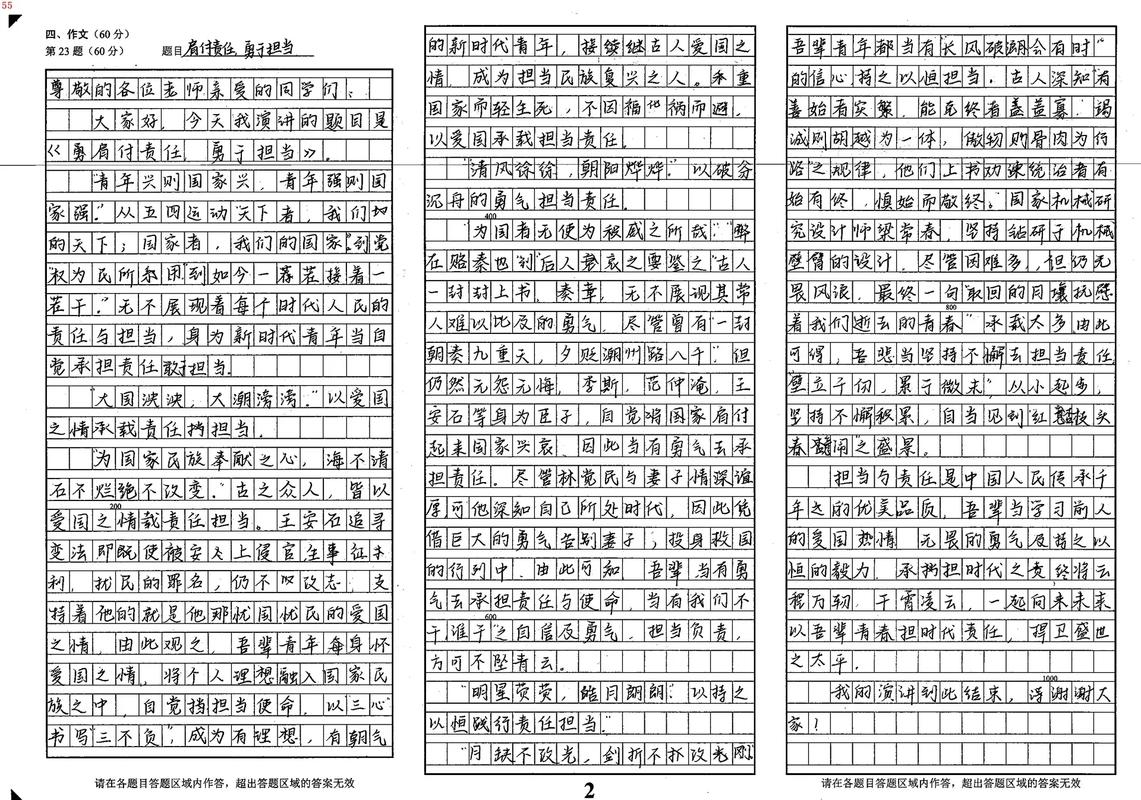 55
四、作文(60分)
第23题(60分) 题目 肩付责任 勇于担当
尊敬的各位老师亲爱的同学们:
大家好,今天我演讲的题目是
《勇肩付责任,勇于担当》。
"青年兴则国家兴,青年强则国
家强."从五四运动"天下者,我们的
的天下;国家者,我们的国家"到党
权为民所系"到如今一
若干."无不展现着每个时代人民的
责任与担当,身为新时代青年当自
觉承担责任敢于担当.
"大国泱泱,大潮滂滂."以爱国
之情承载责任挡担当.
"为国家民族奉献之心,海不清
石不烂绝不改变."古之众人,皆以
200
爱国之情载责任担当。王安石追寻
变法即既使被安人上侵官生事征
利,扰民的罪名,仍不改志,支
持着他的就是他那忧国忧民的爱国
之情,由此观之,吾辈青年每身怀
爱国之情,将个人理想融入国家民
族之中,自觉挡担当使命,以三心
书写"三不负",成为有理想,有朝气
请在各题目答题区域内作答,超出答题区域的答案无效
的新时代青年,接续继古人爱国之
情,成为担当民族复兴之人。重
国家而轻生死,不因福他祸而避,
以爱国承载担当责任.
"清风徐徐,朝阳烨烨."以破釜
沉舟的勇气担当责任.
400
"为国者无使为积威之所哉""弊
在赂秦也"到"后人哀之要鉴之"古人
一封封上书,奏章,无不展现其常
人难以比及的勇气,尽管曾有"一封
朝奏九重天,夕贬潮州路八千"但
仍然无怨无悔,李斯,范仲淹,王
安石等身为臣子,自觉将国家肩付
起来国家兴哀.因此当有勇气去承
担责任.尽管林觉民与妻子情深谊
厚可他深知自己所处时代,因此凭
借巨大的勇气告别妻子,投身救国
的行列中.由此可知,吾辈当有勇
气去承担责任与使命,当有我们不
600
干谁干"之自信及勇气,担当负责,
方可不坠青云。
"明星荧荧,皓月朗朗."以持之
以恒践行责任担当."
"月缺不改光,剑折不改刚
2
吾辈青年都当有"长风破浪会有时"
的信心持之以恒担当.古人深知"有
善始者实繁,能克终者盖寡.竭
诚则胡越为一体,傲物则骨肉为行
路"之规律,他们上书劝谏统治者有
始有终,慎始而敬终.国家机械研
究设计师梁常春,坚持钻研于机械
臂的设计,尽管困难多,但仍无
畏风浪,最终一句"取回的月壤抚慰
800
着我们逝去的青春"承载太多由此
可得,吾辈当坚持不懈去担当责任
"壁立千仞,累于微末"从小起步,
坚持不懈积累,自当见到"红杏枝头
春闹"之盛景。
担当与责任是中国人民传承千
年之的优美品质,吾辈当学习前人
的爱国热情 无畏的勇气及持之以
恒的毅力,承担时代之责,终将云
程万轫,干霄凌云,一起向未来
以吾辈青春担时代责任,捍卫盛世
之太平.
1000
我的演讲到此结束,谢谢大
家!
请在各题目答题区域内作答,超出答题区域的答案无效